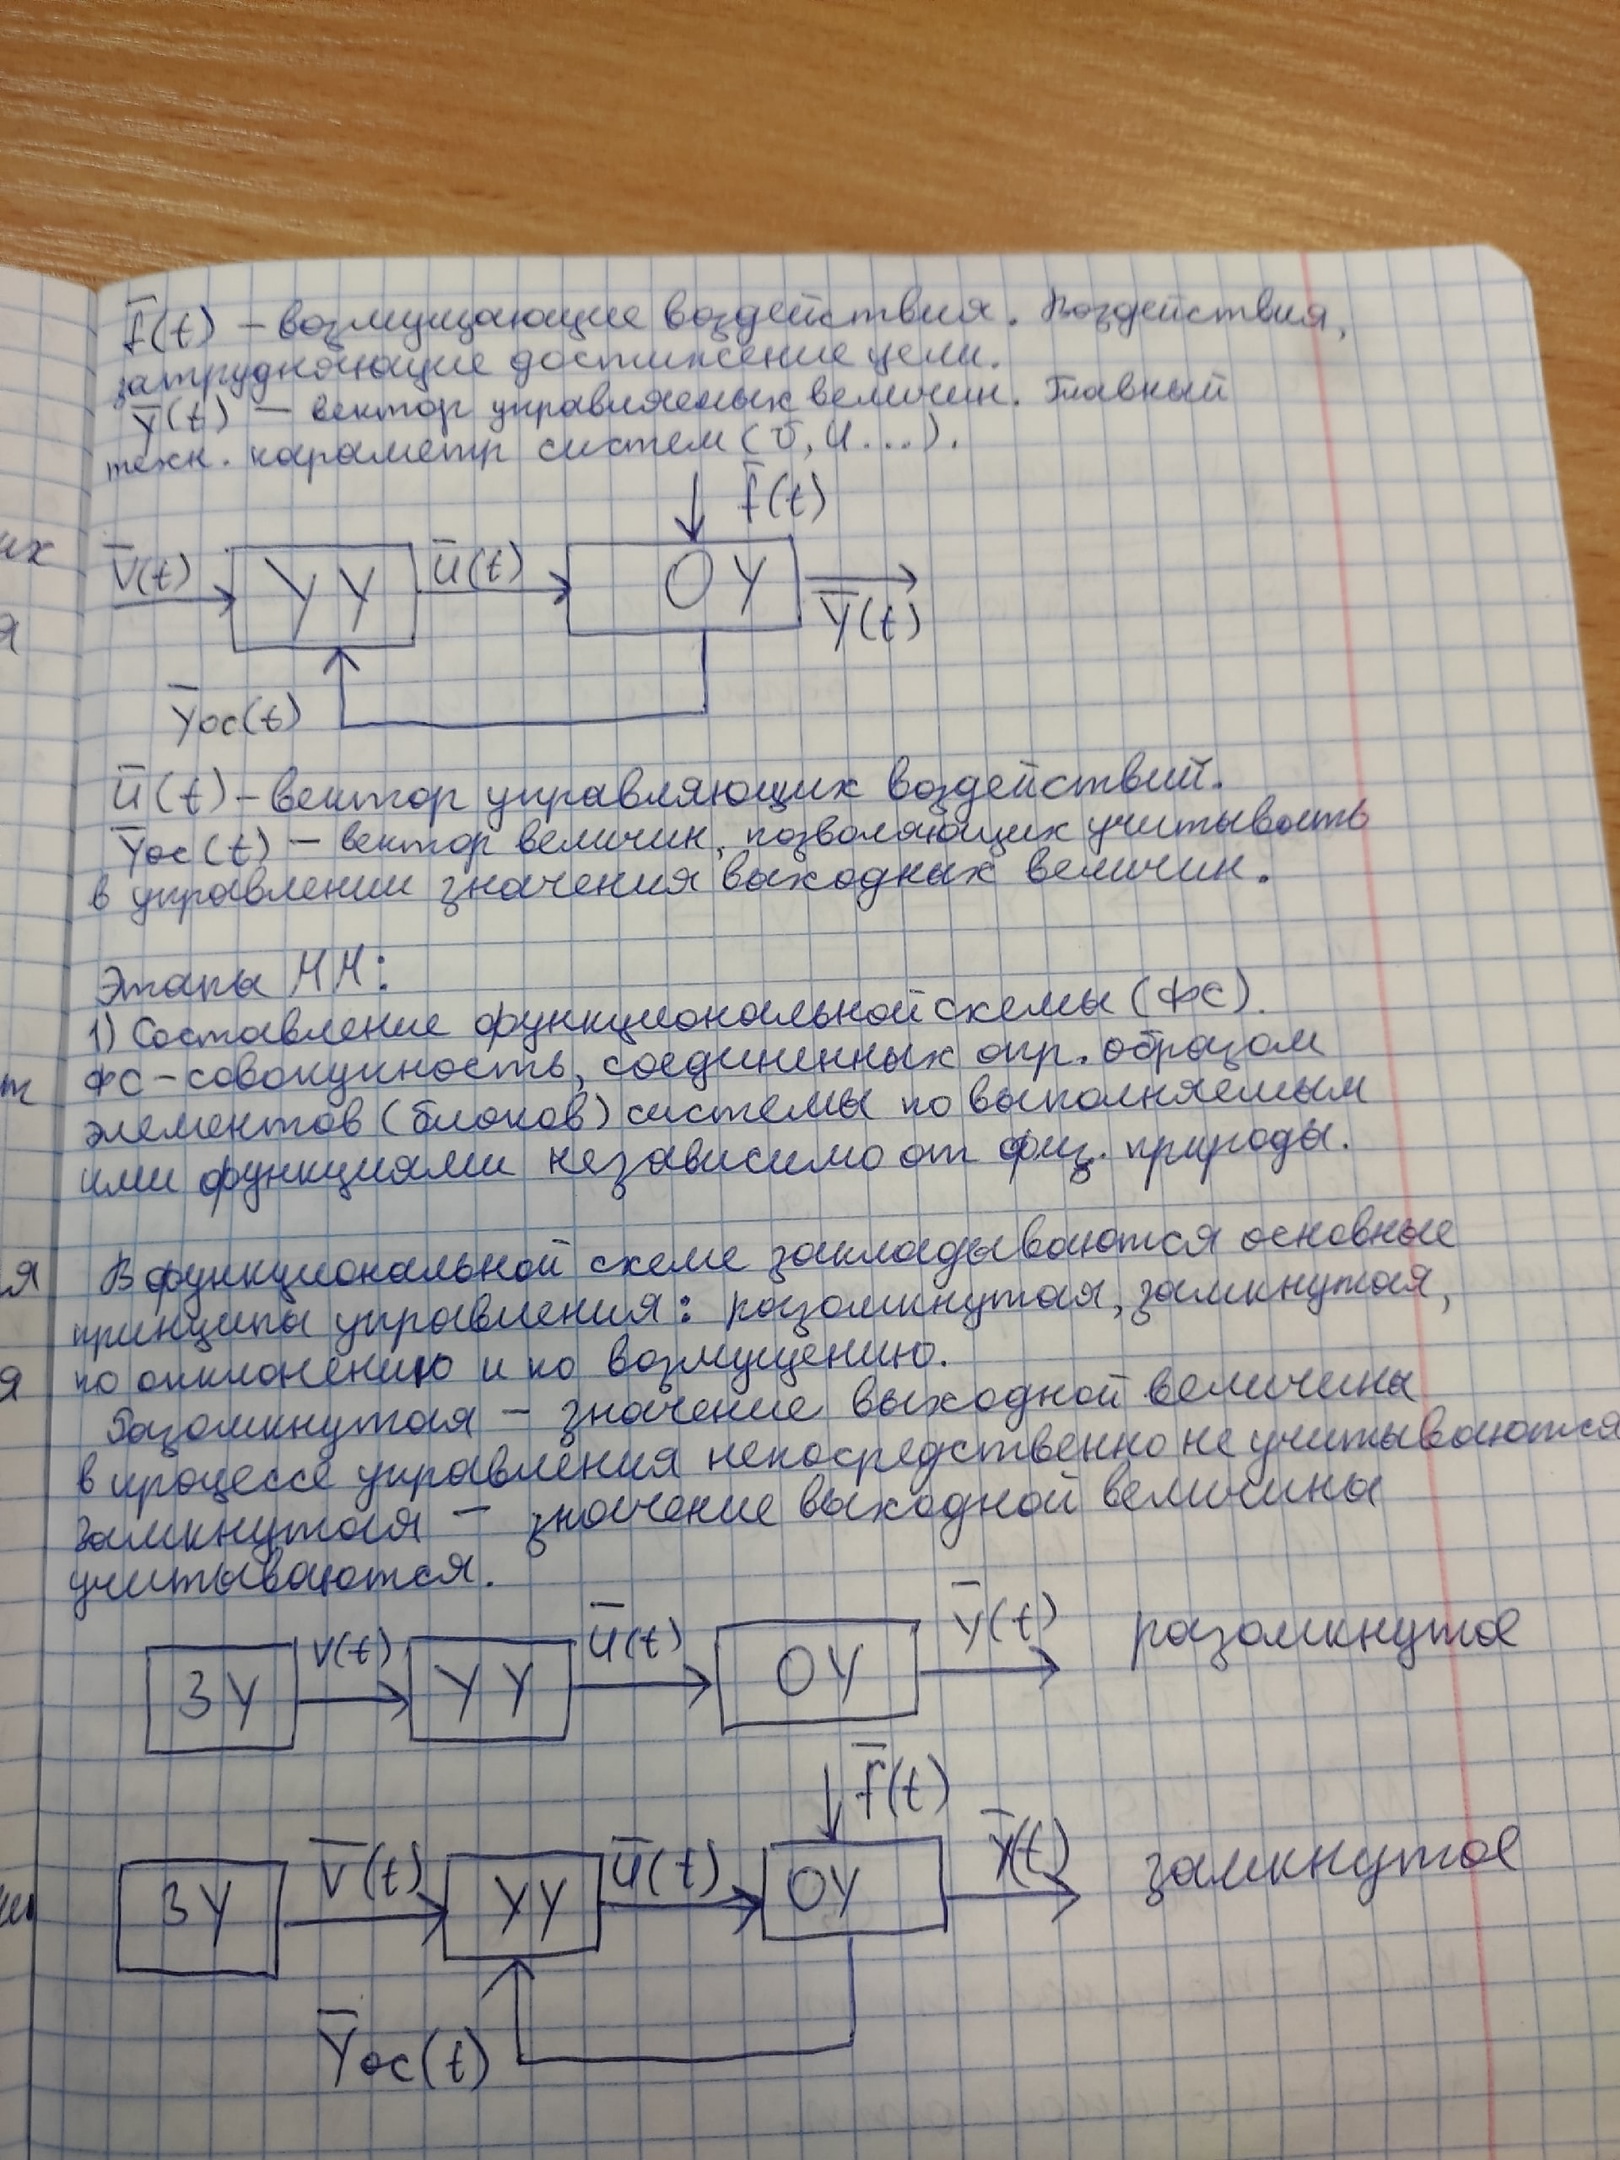 f̅(t) – возмущающие воздействия. Воздействия,
затрудняющие достижение цели.
y̅(t) – вектор управляемых величин. Главный
техн. параметр систем (U, I...).
f̅(t)
их
V̅(t)
УУ
u̅(t)
ОУ
Y̅(t)
я
Y̅ос(t)
u̅(t) – вектор управляющих воздействий.
Y̅ос(t) – вектор величин, позволяющих учитывать
в управлении значения выходных величин.
Этапы ММ:
1) Составление функциональной схемы (ФС).
т
ФС – совокупность, соединенных опр. образом
элементов (блоков) системы по выполняемым
ими функциям независимо от физ. природы.
я
В функциональной схеме закладываются основные
принципы управления: разомкнутая, замкнутая,
я
по отклонению и по возмущению.
Разомкнутая – значение выходной величины
в процессе управления непосредственно не учитываются
замкнутая – значение выходной величины
учитываются.
ЗУ
v(t)
УУ
u̅(t)
ОУ
y̅(t)
разомкнутое
f̅(t)
ЗУ
V̅(t)
УУ
u̅(t)
ОУ
Y̅(t)
замкнутое
Y̅ос(t)